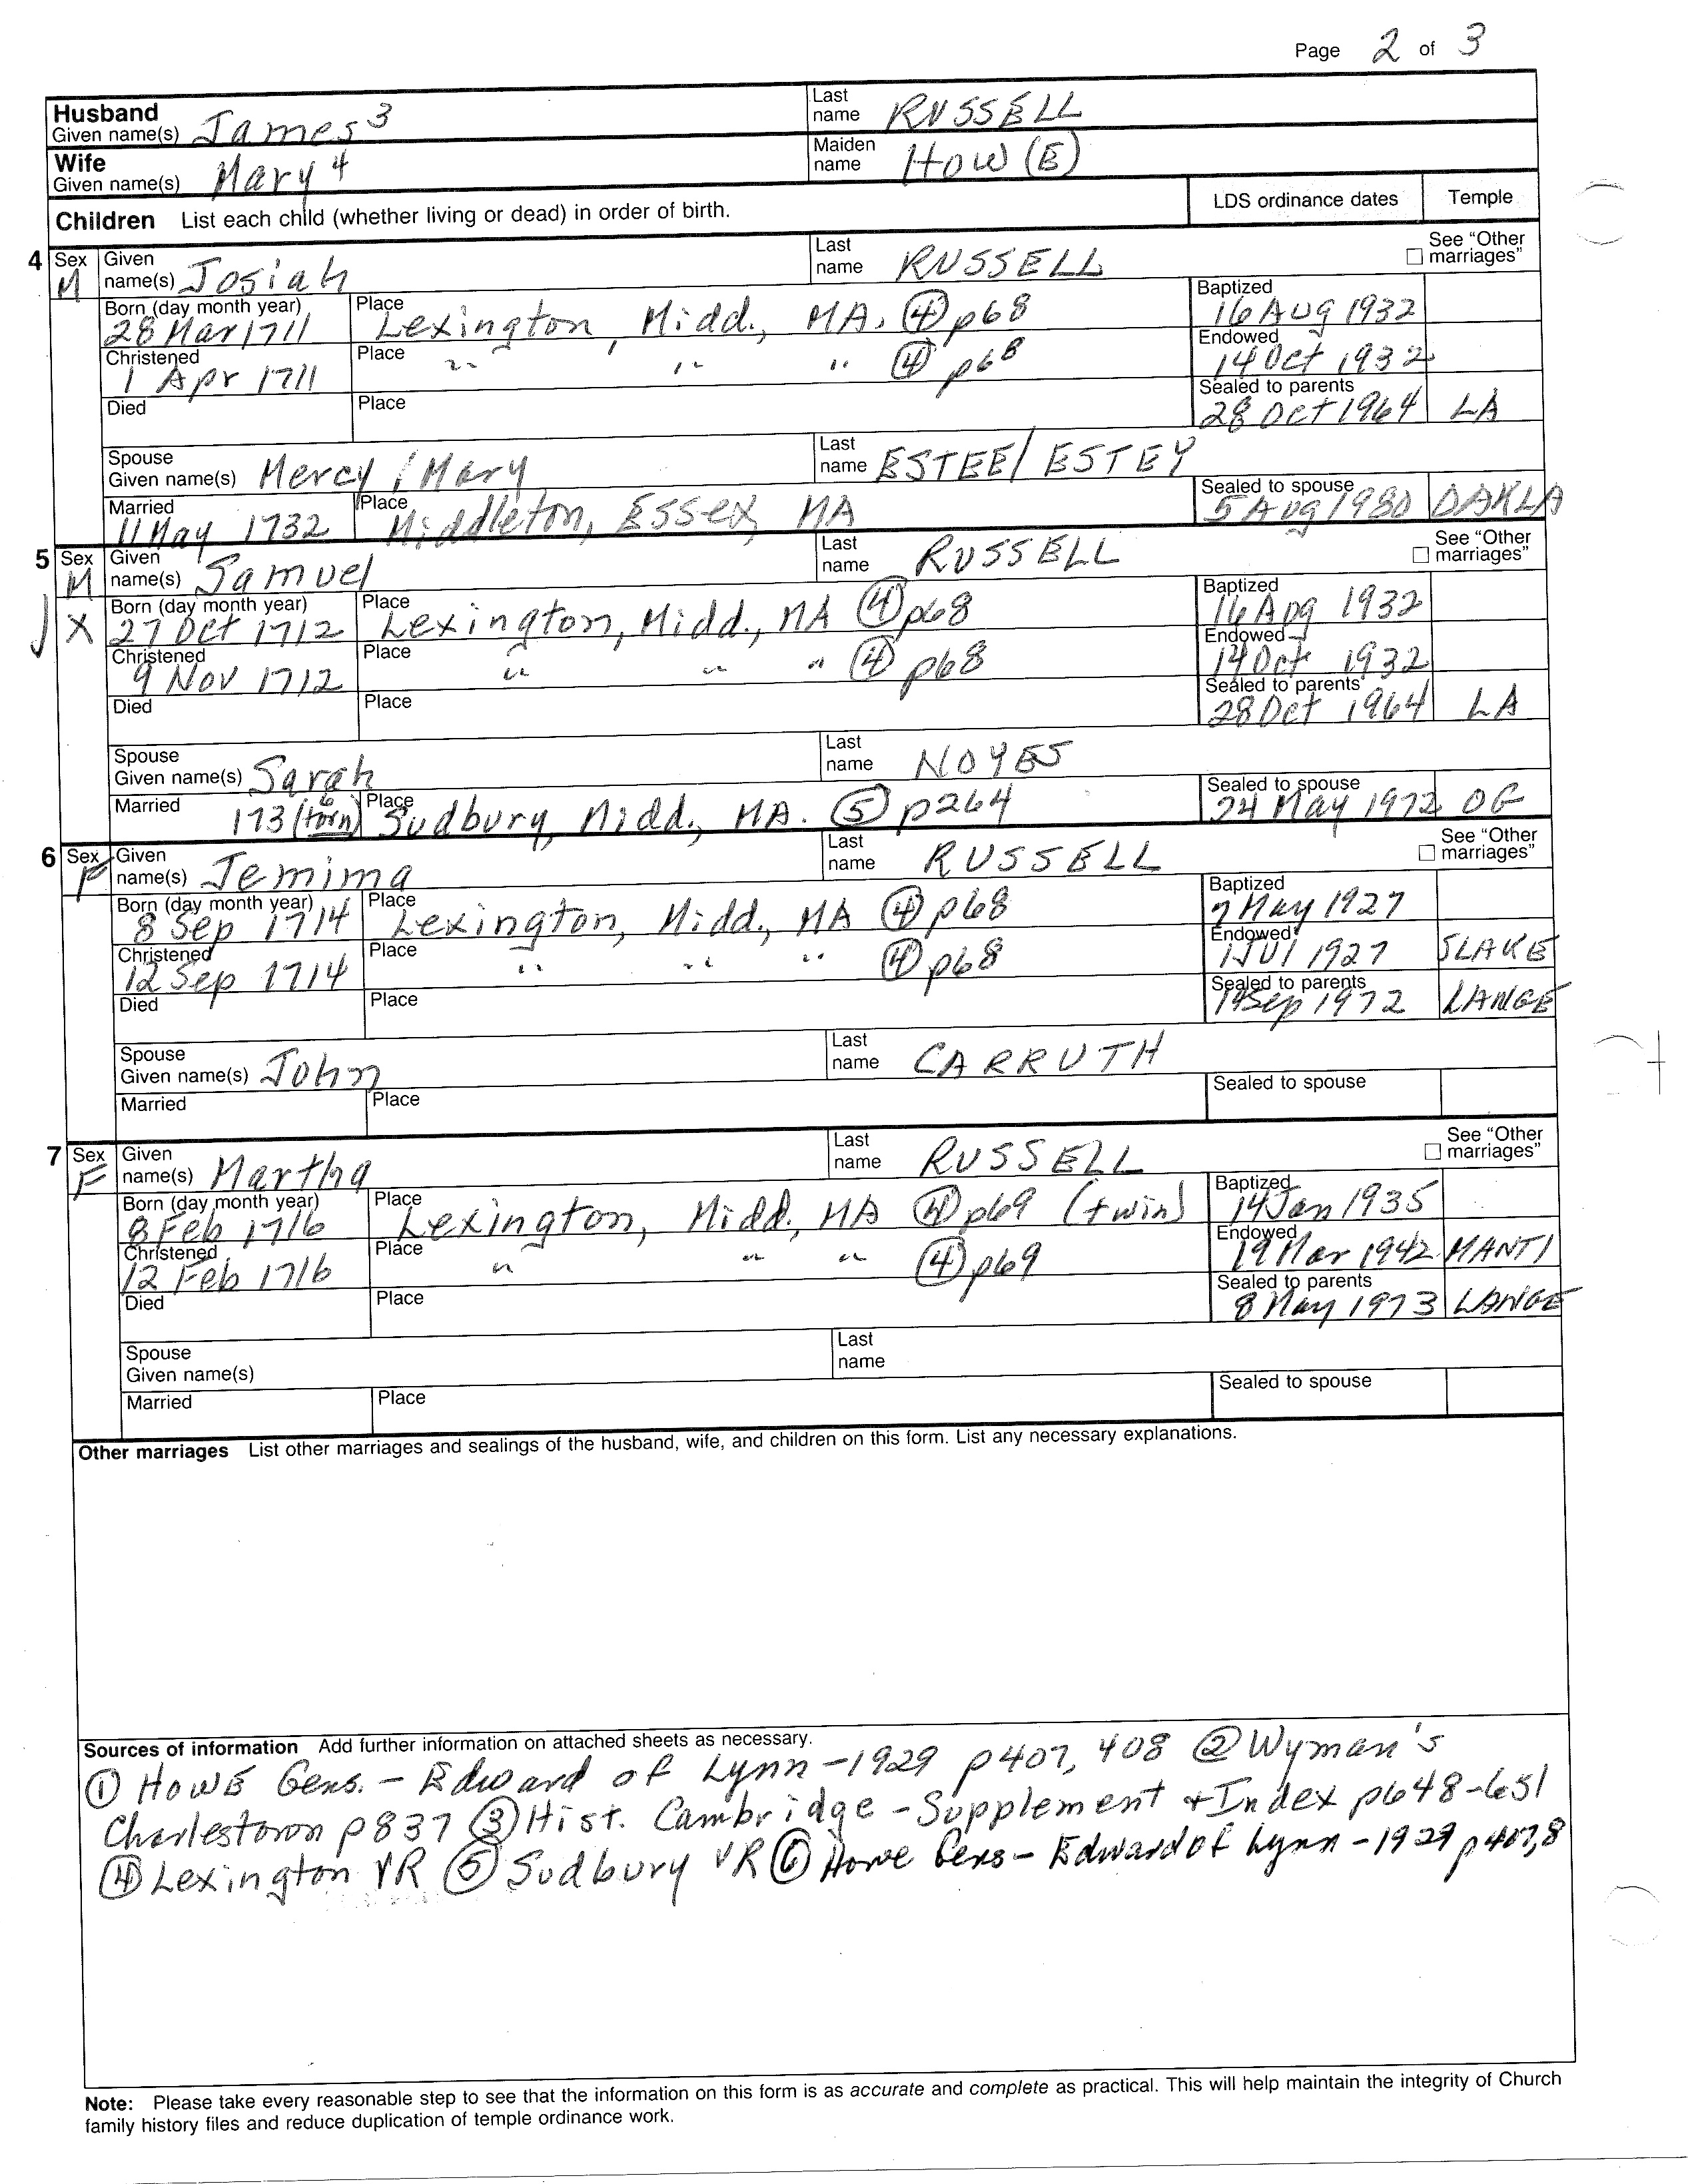 Page 2 of 3
Husband Given name(s) James 3 Last name RUSSELL
Wife Given name(s) Mary 4 Maiden name HOW (E)
Children List each child (whether living or dead) in order of birth. LDS ordinance dates Temple
4 Sex M Given name(s) Josiah Last name RUSSELL See “Other marriages”
Born (day month year) 28 Mar 1711 Place Lexington, Midd., MA. ④ p68 Baptized 16 AUG 1932
Christened 1 Apr 1711 Place " " " ④ p68 Endowed 14 Oct 1932
Died Place Sealed to parents 28 Oct 1964 LA
Spouse Given name(s) Mercy / Mary Last name ESTEE / ESTEY
Married 11 May 1732 Place Middleton, Essex, MA Sealed to spouse 5 Aug 1980 OAKLA
5 Sex M Given name(s) Samuel Last name RUSSELL See “Other marriages”
X Born (day month year) 27 Oct 1712 Place Lexington, Midd., MA ④ p68 Baptized 16 Aug 1932
Christened 9 Nov 1712 Place " " " ④ p68 Endowed 14 Oct 1932
Died Place Sealed to parents 28 Oct 1964 LA
Spouse Given name(s) Sarah Last name NOYES
Married 173 (torn) Place Sudbury, Midd., MA. ⑤ p264 Sealed to spouse 24 May 1972 OG
6 Sex F Given name(s) Jemima Last name RUSSELL See “Other marriages”
Born (day month year) 8 Sep 1714 Place Lexington, Midd., MA ④ p68 Baptized 7 May 1927
Christened 12 Sep 1714 Place " " " ④ p68 Endowed 1 Jul 1927 SLAKE
Died Place Sealed to parents Sep 1972 LANGE
Spouse Given name(s) John Last name CARRUTH
Married Place Sealed to spouse
7 Sex F Given name(s) Martha Last name RUSSELL See “Other marriages”
Born (day month year) 8 Feb 1716 Place Lexington, Midd., MA ④ p69 (twin) Baptized 14 Jan 1935
Christened 12 Feb 1716 Place " " " ④ p69 Endowed 19 Mar 1942 MANTI
Died Place Sealed to parents 8 May 1973 LANGE
Spouse Given name(s) Last name
Married Place Sealed to spouse
Other marriages List other marriages and sealings of the husband, wife, and children on this form. List any necessary explanations.
Sources of information Add further information on attached sheets as necessary.
① HOWE Gens. - Edward of Lynn - 1929 p407, 408 ② Wyman's
Charlestown p837 ③ Hist. Cambridge - Supplement + Index p648-651
④ Lexington VR ⑤ Sudbury VR ⑥ Howe Gens - Edward of Lynn - 1929 p407,8
Note: Please take every reasonable step to see that the information on this form is as accurate and complete as practical. This will help maintain the integrity of Church
family history files and reduce duplication of temple ordinance work.